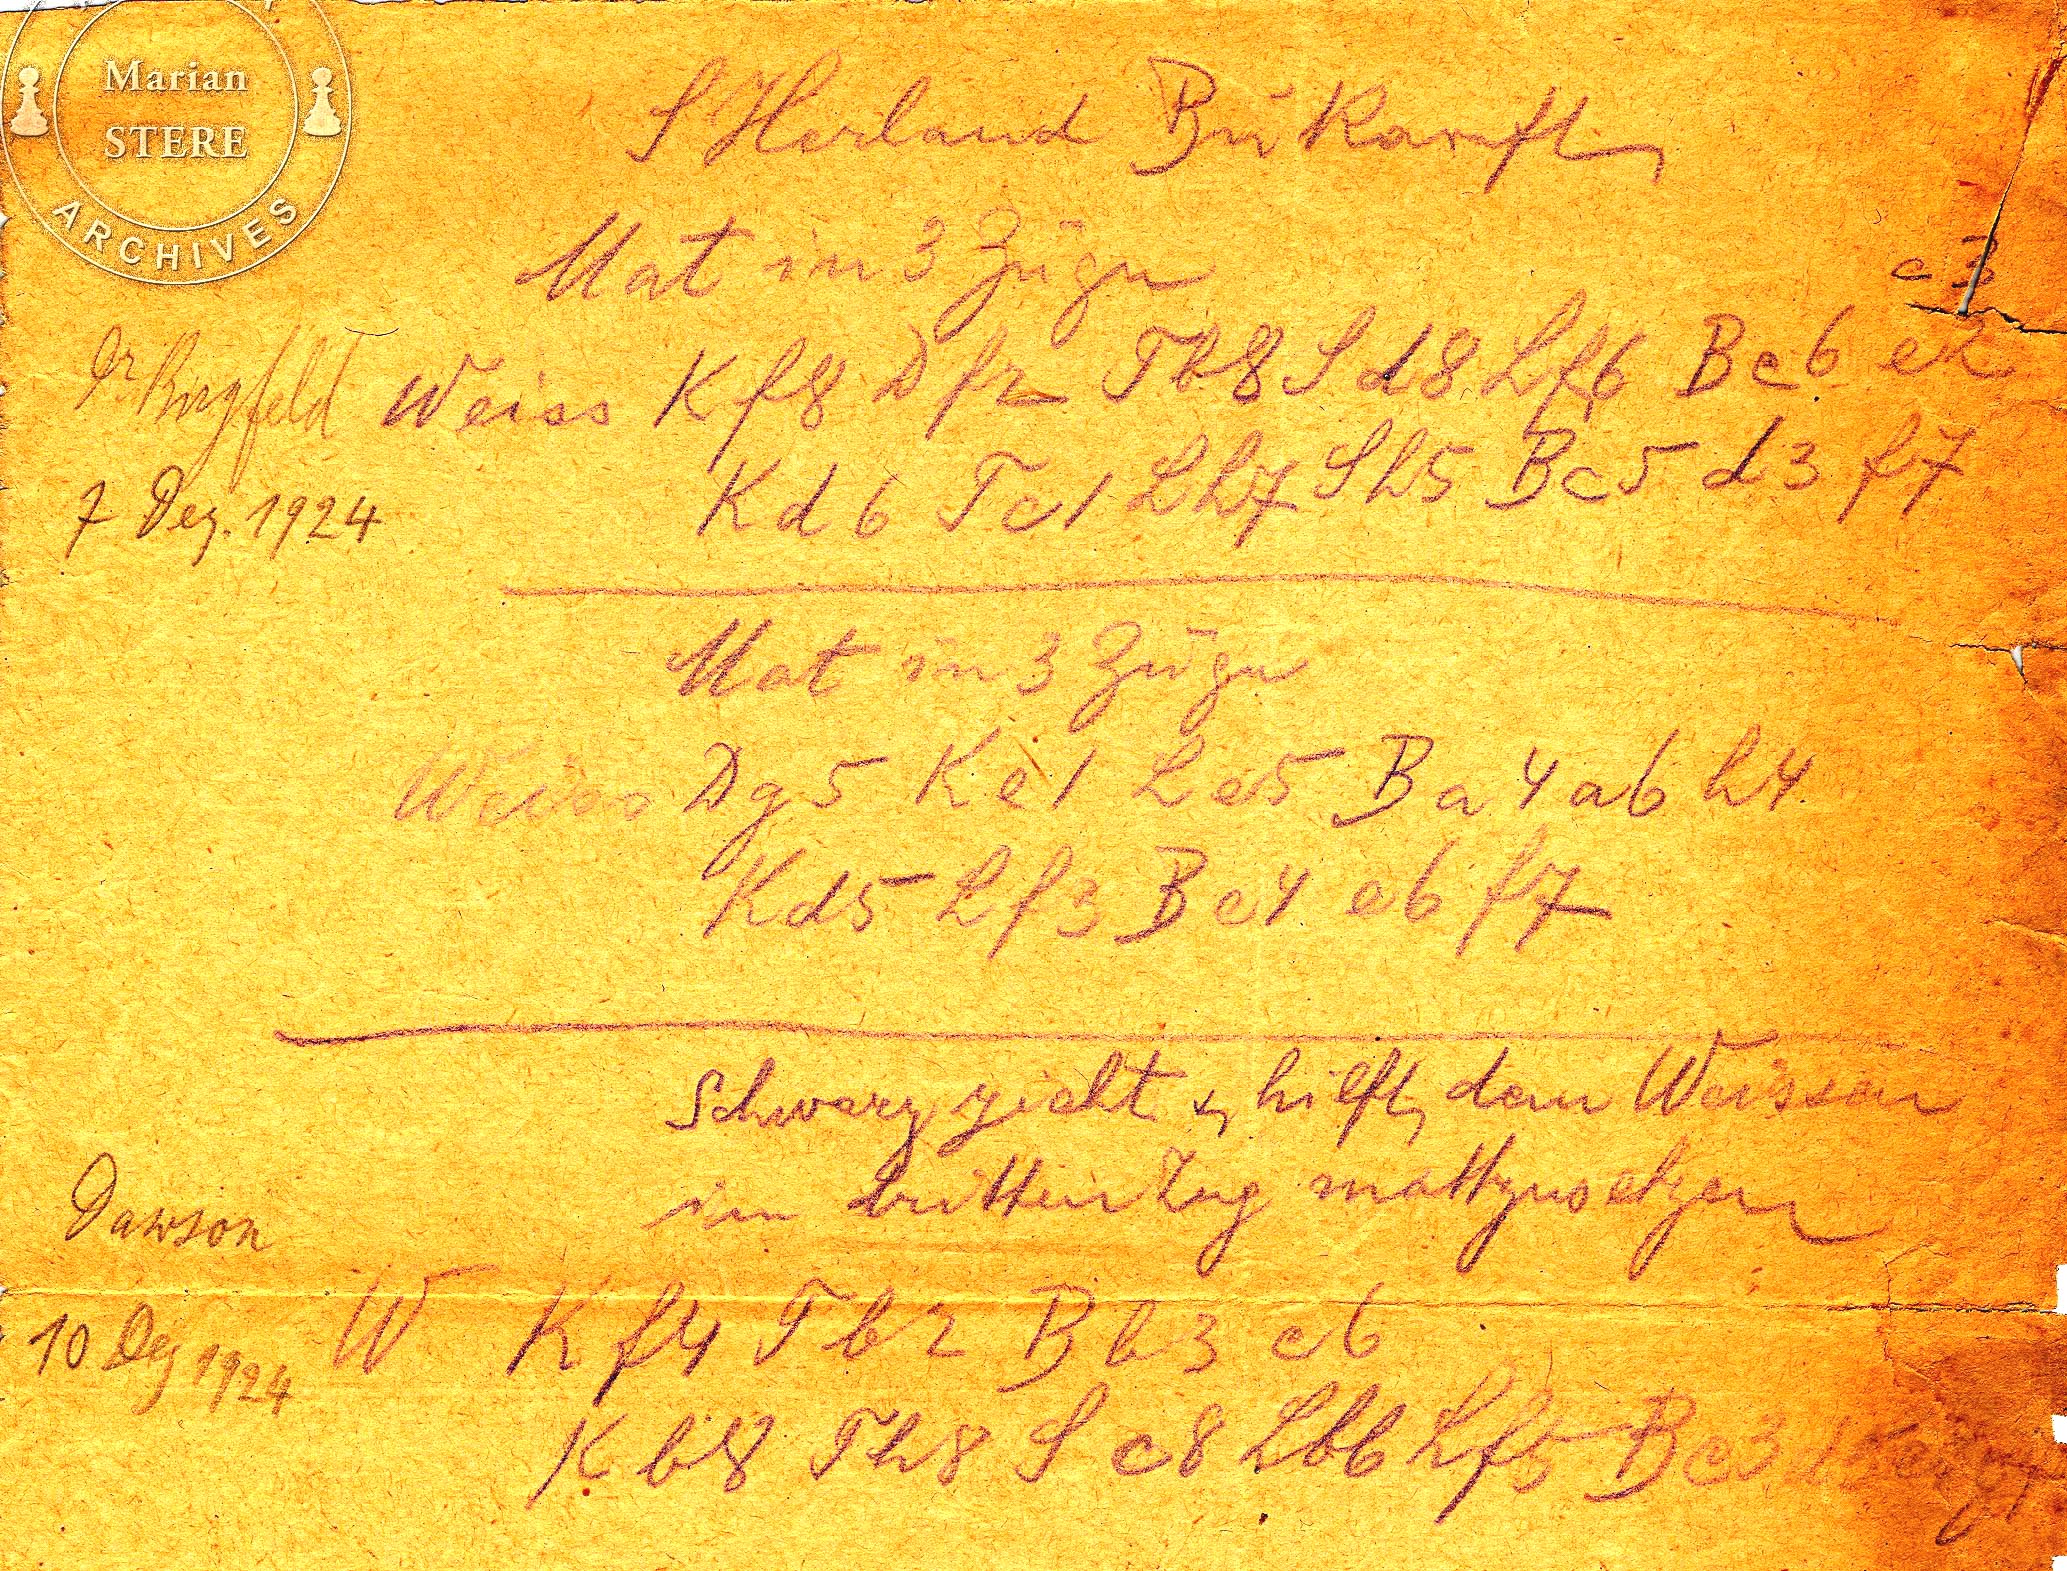 Marian
STERE
ARCHIVES
S Herland Bukarest
Mat in 3 Zügen
c3
Weiss Kf8 Df2 Tb8 Sd8 Lf6 Bc6 e2
Kd6 Tc1 Lh7 Sh5 Bc5 d3 f7
Dr Birgfeld
7 Dez. 1924
Mat in 3 Zügen
Weiss Dg5 Ke1 Le5 Ba4 a6 h4
Kd5 Lf3 Be4 e6 f7
Schwarz zieht & hilft dem Weissen
im dritten Zug mattzusetzen
Dawson
10 Dez 1924
W Kf4 Tb2 Bb3 c6
Kb8 Th8 Sc8 Lb6 Lf5 Bc3